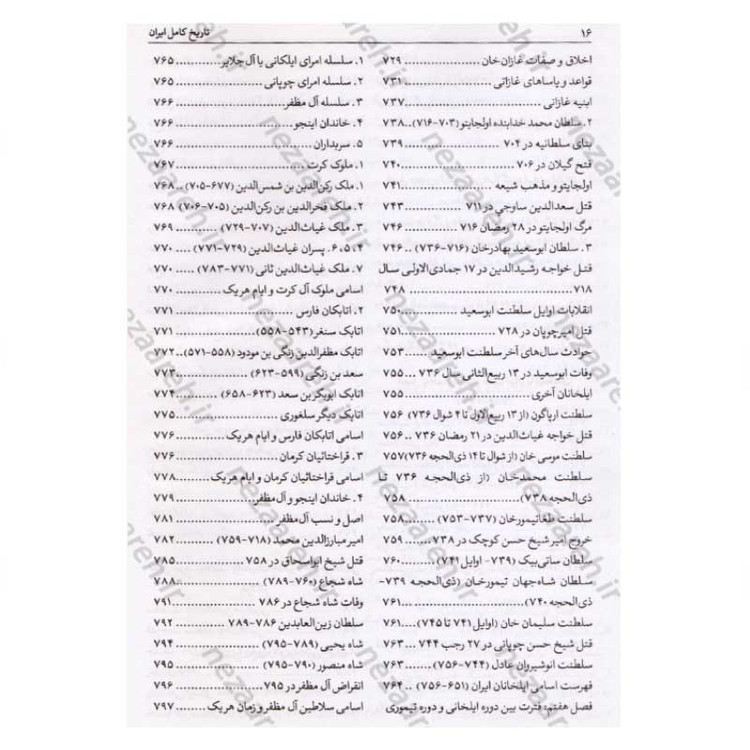 ۱۶
تاریخ کامل ایران
اخلاق و صفات غازان‌خان .................... ۷۲۹
قواعد و یاساهای غازانی ...................... ۷۳۱
ابنیه غازانی ...................................... ۷۳۷
۲. سلطان محمد خدابنده اولجایتو (۷۰۳-۷۱۶) .. ۷۳۸
بنای سلطانیه در ۷۰۴ ......................... ۷۳۹
فتح گیلان در ۷۰۶ ............................. ۷۴۰
اولجایتو و مذهب شیعه ....................... ۷۴۱
قتل سعدالدین ساوجی در ۷۱۱ ............... ۷۴۳
مرگ اولجایتو در ۲۸ رمضان ۷۱۶ ........... ۷۴۶
۳. سلطان ابوسعید بهادرخان (۷۱۶-۷۳۶) .. ۷۴۶
قتل خواجه رشیدالدین در ۱۷ جمادی‌الاولی سال
۷۱۸ ............................................... ۷۴۸
انقلابات اوایل سلطنت ابوسعید .............. ۷۵۰
قتل امیرچوپان در ۷۲۸ ....................... ۷۵۱
حوادث سال‌های آخر سلطنت ابوسعید ...... ۷۵۳
وفات ابوسعید در ۱۳ ربیع‌الثانی سال ۷۳۶ ... ۷۵۵
ایلخانان آخری .................................. ۷۵۵
سلطنت ارپاگون (از ۱۳ ربیع‌الاول تا ۴ شوال ۷۳۶) ۷۵۶
قتل خواجه غیاث‌الدین در ۲۱ رمضان ۷۳۶ .. ۷۵۶
سلطنت موسی خان (از شوال تا ۱۴ ذی‌الحجه ۷۳۶) ۷۵۷
سلطنت محمدخان (از ذی‌الحجه ۷۳۶ تا
ذی‌الحجه ۷۳۸) ................................ ۷۵۸
سلطنت طغاتیمورخان (۷۳۷-۷۵۳) ........ ۷۵۸
خروج امیر شیخ حسن کوچک در ۷۳۸ ..... ۷۵۹
سلطان ساتی‌بیک (۷۳۹- اوایل ۷۴۱) ....... ۷۶۰
سلطان شاه‌جهان تیمورخان (ذی‌الحجه ۷۳۹-
ذی‌الحجه ۷۴۰) ................................ ۷۶۱
سلطنت سلیمان خان (اوایل ۷۴۱ تا ۷۴۵) .... ۷۶۱
قتل شیخ حسن چوپانی در ۲۷ رجب ۷۴۴ ... ۷۶۳
سلطنت انوشیروان عادل (۷۴۴-۷۵۶) ...... ۷۶۳
فهرست اسامی ایلخانان ایران (۶۵۱-۷۵۶) .. ۷۶۴
فصل هفتم: فترت بین دوره ایلخانی و دوره تیموری
۱. سلسله امرای ایلکانی یا آل جلایر ........... ۷۶۵
۲. سلسله امرای چوپانی ...................... ۷۶۵
۳. سلسله آل مظفر ............................. ۷۶۶
۴. خاندان اینجو ................................ ۷۶۶
۵. سربداران ..................................... ۷۶۶
۱. ملوک کرت .................................. ۷۶۷
۱. ملک رکن‌الدین بن شمس‌الدین (۶۷۷-۷۰۵) .. ۷۶۸
۲. ملک فخرالدین بن رکن‌الدین (۷۰۵-۷۰۶) ۷۶۸
۳. ملک غیاث‌الدین (۷۰۷-۷۲۹) ............ ۷۶۹
۴، ۵، ۶. پسران غیاث‌الدین (۷۲۹-۷۷۱) .... ۷۷۰
۷. ملک غیاث‌الدین ثانی (۷۷۱-۷۸۳) ...... ۷۷۰
اسامی ملوک آل کرت و ایام هریک ........... ۷۷۰
۲. اتابکان فارس ................................ ۷۷۱
اتابک سنغر (۵۴۳-۵۵۸) ..................... ۷۷۱
اتابک مظفرالدین زنگی بن مودود (۵۵۸-۵۷۱) ... ۷۷۲
سعد بن زنگی (۵۹۹-۶۲۳) .................. ۷۷۳
اتابک ابوبکر بن سعد (۶۲۳-۶۵۸) ........... ۷۷۴
اتابک دیگر سلغوری ............................ ۷۷۵
اسامی اتابکان فارس و ایام هریک ............ ۷۷۶
۳. قراختائیان کرمان ........................... ۷۷۶
اسامی قراختائیان کرمان و ایام هریک ........ ۷۷۸
۴. خاندان اینجو و آل مظفر ................... ۷۷۹
اصل و نسب آل مظفر .......................... ۷۸۱
امیر مبارزالدین محمد (۷۱۸-۷۵۹) .......... ۷۸۲
قتل شیخ ابواسحاق در ۷۵۸ .................. ۷۸۵
شاه شجاع (۷۶۰-۷۸۹) ...................... ۷۸۸
وفات شاه شجاع در ۷۸۶ ...................... ۷۹۱
سلطان زین‌العابدین ۷۸۶-۷۸۹ .............. ۷۹۲
شاه یحیی (۷۸۹-۷۹۵) ....................... ۷۹۴
شاه منصور (۷۹۰-۷۹۵) ..................... ۷۹۵
انقراض آل مظفر در ۷۹۵ ...................... ۷۹۶
اسامی سلاطین آل مظفر و زمان هریک ...... ۷۹۷
nezaareh.ir